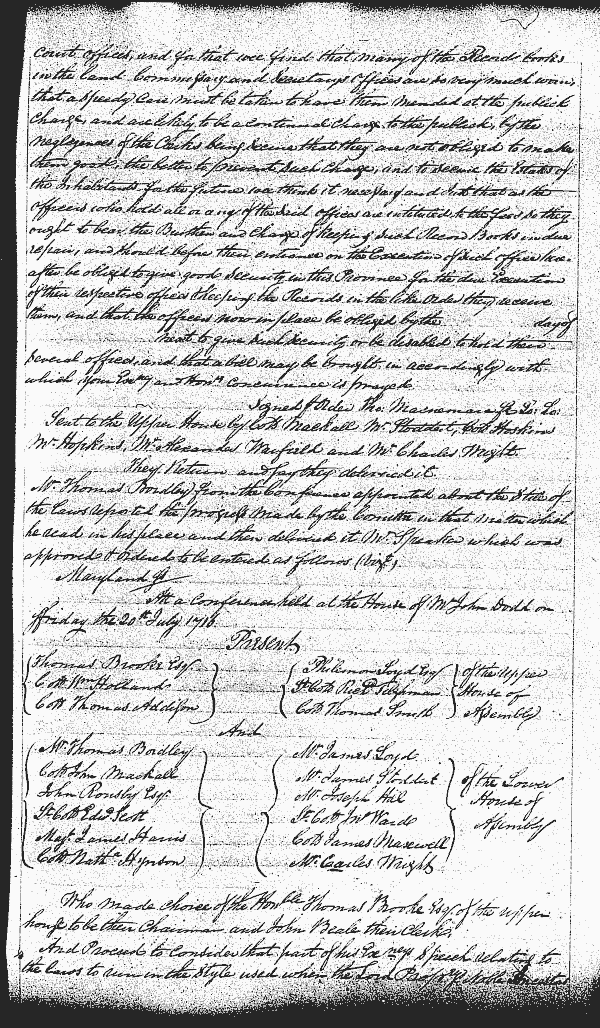 Court offices, and for that wee find that many of the Records books
in the Land Commissary and Secretarys Offices are so very much worn,
that a speedy Care must be taken to have them mended at the publick
Charge, and are likely to be a continual Charge to the publick, by the
neglegences of the Clerks being secure that they are not obliged to make
them good; the better to prevent such Charge, and to secure the Estates of
the Inhabitants for the future wee think it necessary and Just that as the
officers who hold all or any of the said offices are intituled to the fees so they
ought to bear the Burthen and Charge of keeping such Record Books in due
repair, and should before their entrance on the Execution of such office
after be obliged to give good security in this Province for the due Execution
of their respective offices & keeping the Records in the like Order they receive
them, and that the officers now in place be obliged by the day of
next to give such security or be disabled to hold their
several offices, and that a bill may be brought in accordingly with
which your Exncy and Honrs concurrence is prayed
Signed p Order Tho: Macnemara Cl Lo: Ho:
Sent to the Upper House by Collo Mackall Mr Stoddert, Collo Hoskins
Mr Hopkins, Mr Alexander Warfield and Mr Charles Wright
They Return and say they delivered it.
Mr Thomas Bordley from the Conference appointed about the State of
the Laws reported the progress made by the Comittee in that matter which
he read in his place and then delivered it Mr Speaker which was
approved & Ordered to be entred as follows (Vizt)
Maryland ss
At a Conference held at the House of Mr John Dodd on
ffriday the 20th July 1716.
Present
Thomas Brooke Esqr Philemon Loyd Esqr of the Upper
Collo Wm Holland Lt Collo Richd Tilghman House of
Collo Thomas Addison Collo Thomas Smith Assembly
And
Mr Thomas Bordley Mr James Loyd
Collo John Mackall Mr James Stoddert of the Lower
John Rousby Esqr Mr Joseph Hill House of
Lt Collo Edwd Scott Lt Collo Ward Assembly
Majr James Harris Collo James Maxwell
Collo Nathll Hynson Mr Carles Wright
Who made choice of the Honble Thomas Brooke Esqr of the upper
house to be their Chairman and John Beale their Clerk.
And Proceed to Consider that part of his Exncys Speech relating to
the Laws to run in the Style used when the Lord Propry's Noble Ancestors